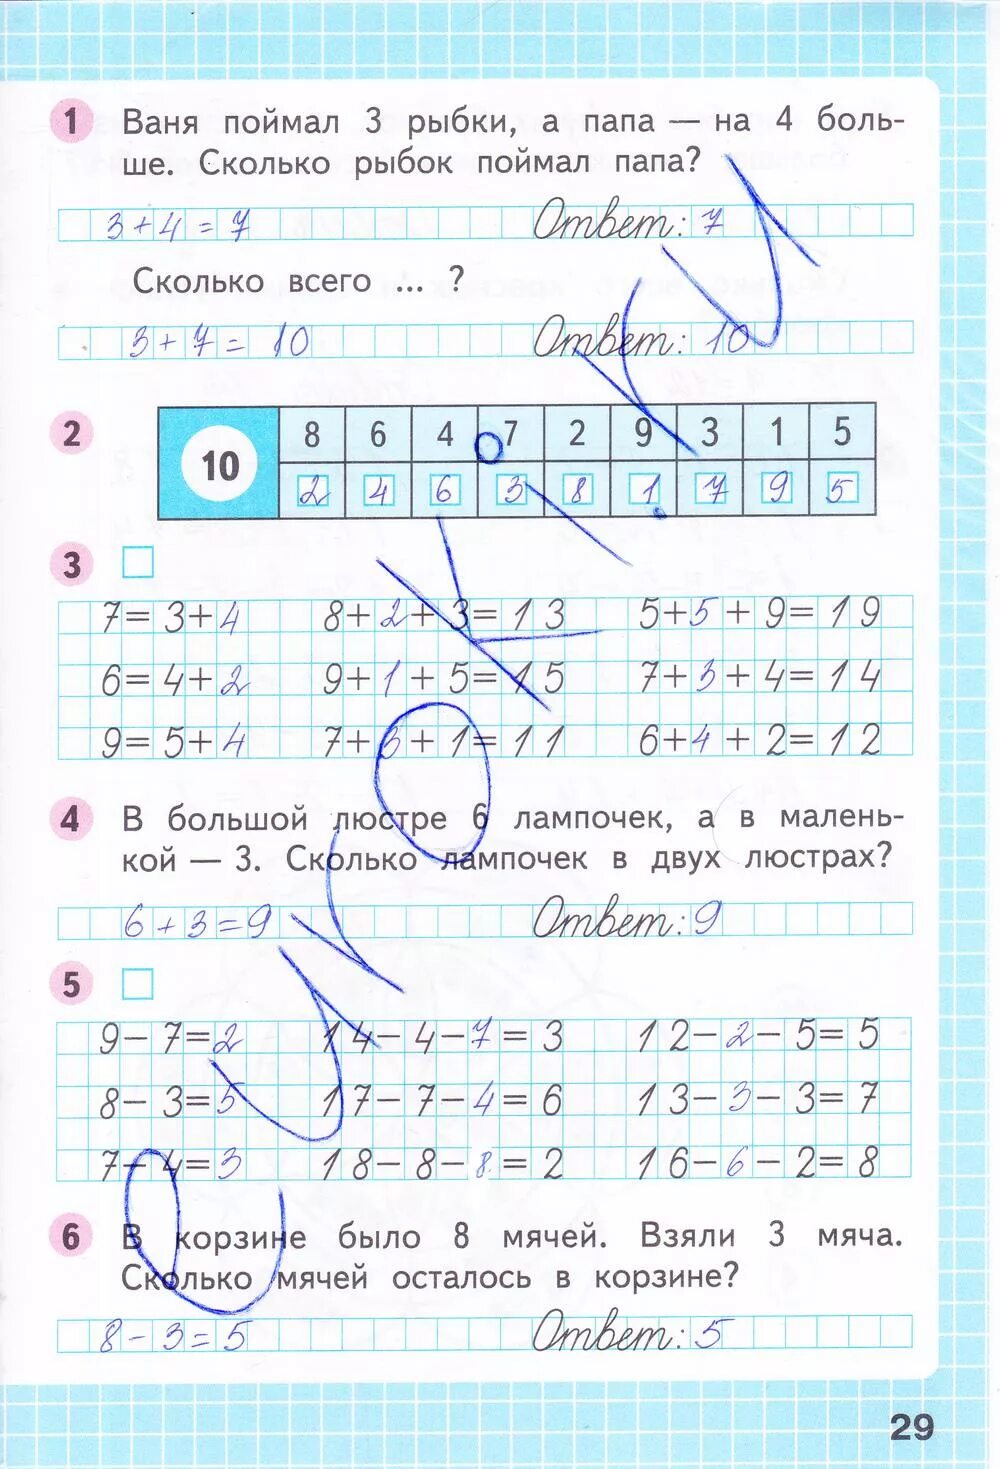 1 Ваня поймал 3 рыбки, а папа — на 4 боль-
ше. Сколько рыбок поймал папа?
3+4=7 Ответ: 7
Сколько всего ... ?
3+7=10 Ответ: 10
2
10 8 6 4 7 2 9 3 1 5
2 4 6 3 8 1 7 9 5
3
7=3+4 8+2+3=13 5+5+9=19
6=4+2 9+1+5=15 7+3+4=14
9=5+4 7+3+1=11 6+4+2=12
4 В большой люстре 6 лампочек, а в малень-
кой — 3. Сколько лампочек в двух люстрах?
6+3=9 Ответ: 9
5
9-7=2 14-4-7=3 12-2-5=5
8-3=5 17-7-4=6 13-3-3=7
7-4=3 18-8-8=2 16-6-2=8
6 В корзине было 8 мячей. Взяли 3 мяча.
Сколько мячей осталось в корзине?
8-3=5 Ответ: 5
29